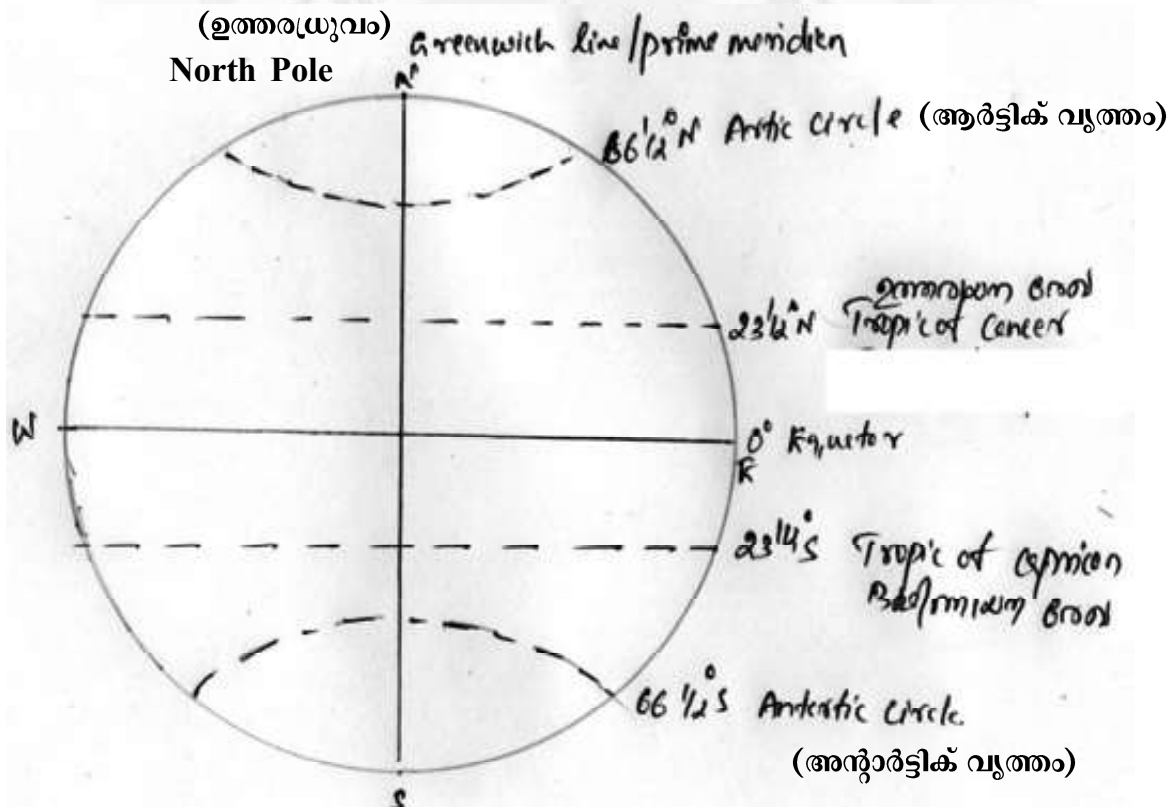 (ഉത്തരധ്രുവം)
Greenwich line/prime meridien
North Pole
N
66 1/2° N Artic Circle (ആർട്ടിക് വൃത്തം)
ഉത്തരായന രേഖ
23 1/2° N Tropic of Cancer
W
0° Equator
E
23 1/4° S Tropic of Capricon
ദക്ഷിണായന രേഖ
66 1/2° S Antertic Circle.
(അന്റാർട്ടിക് വൃത്തം)
S